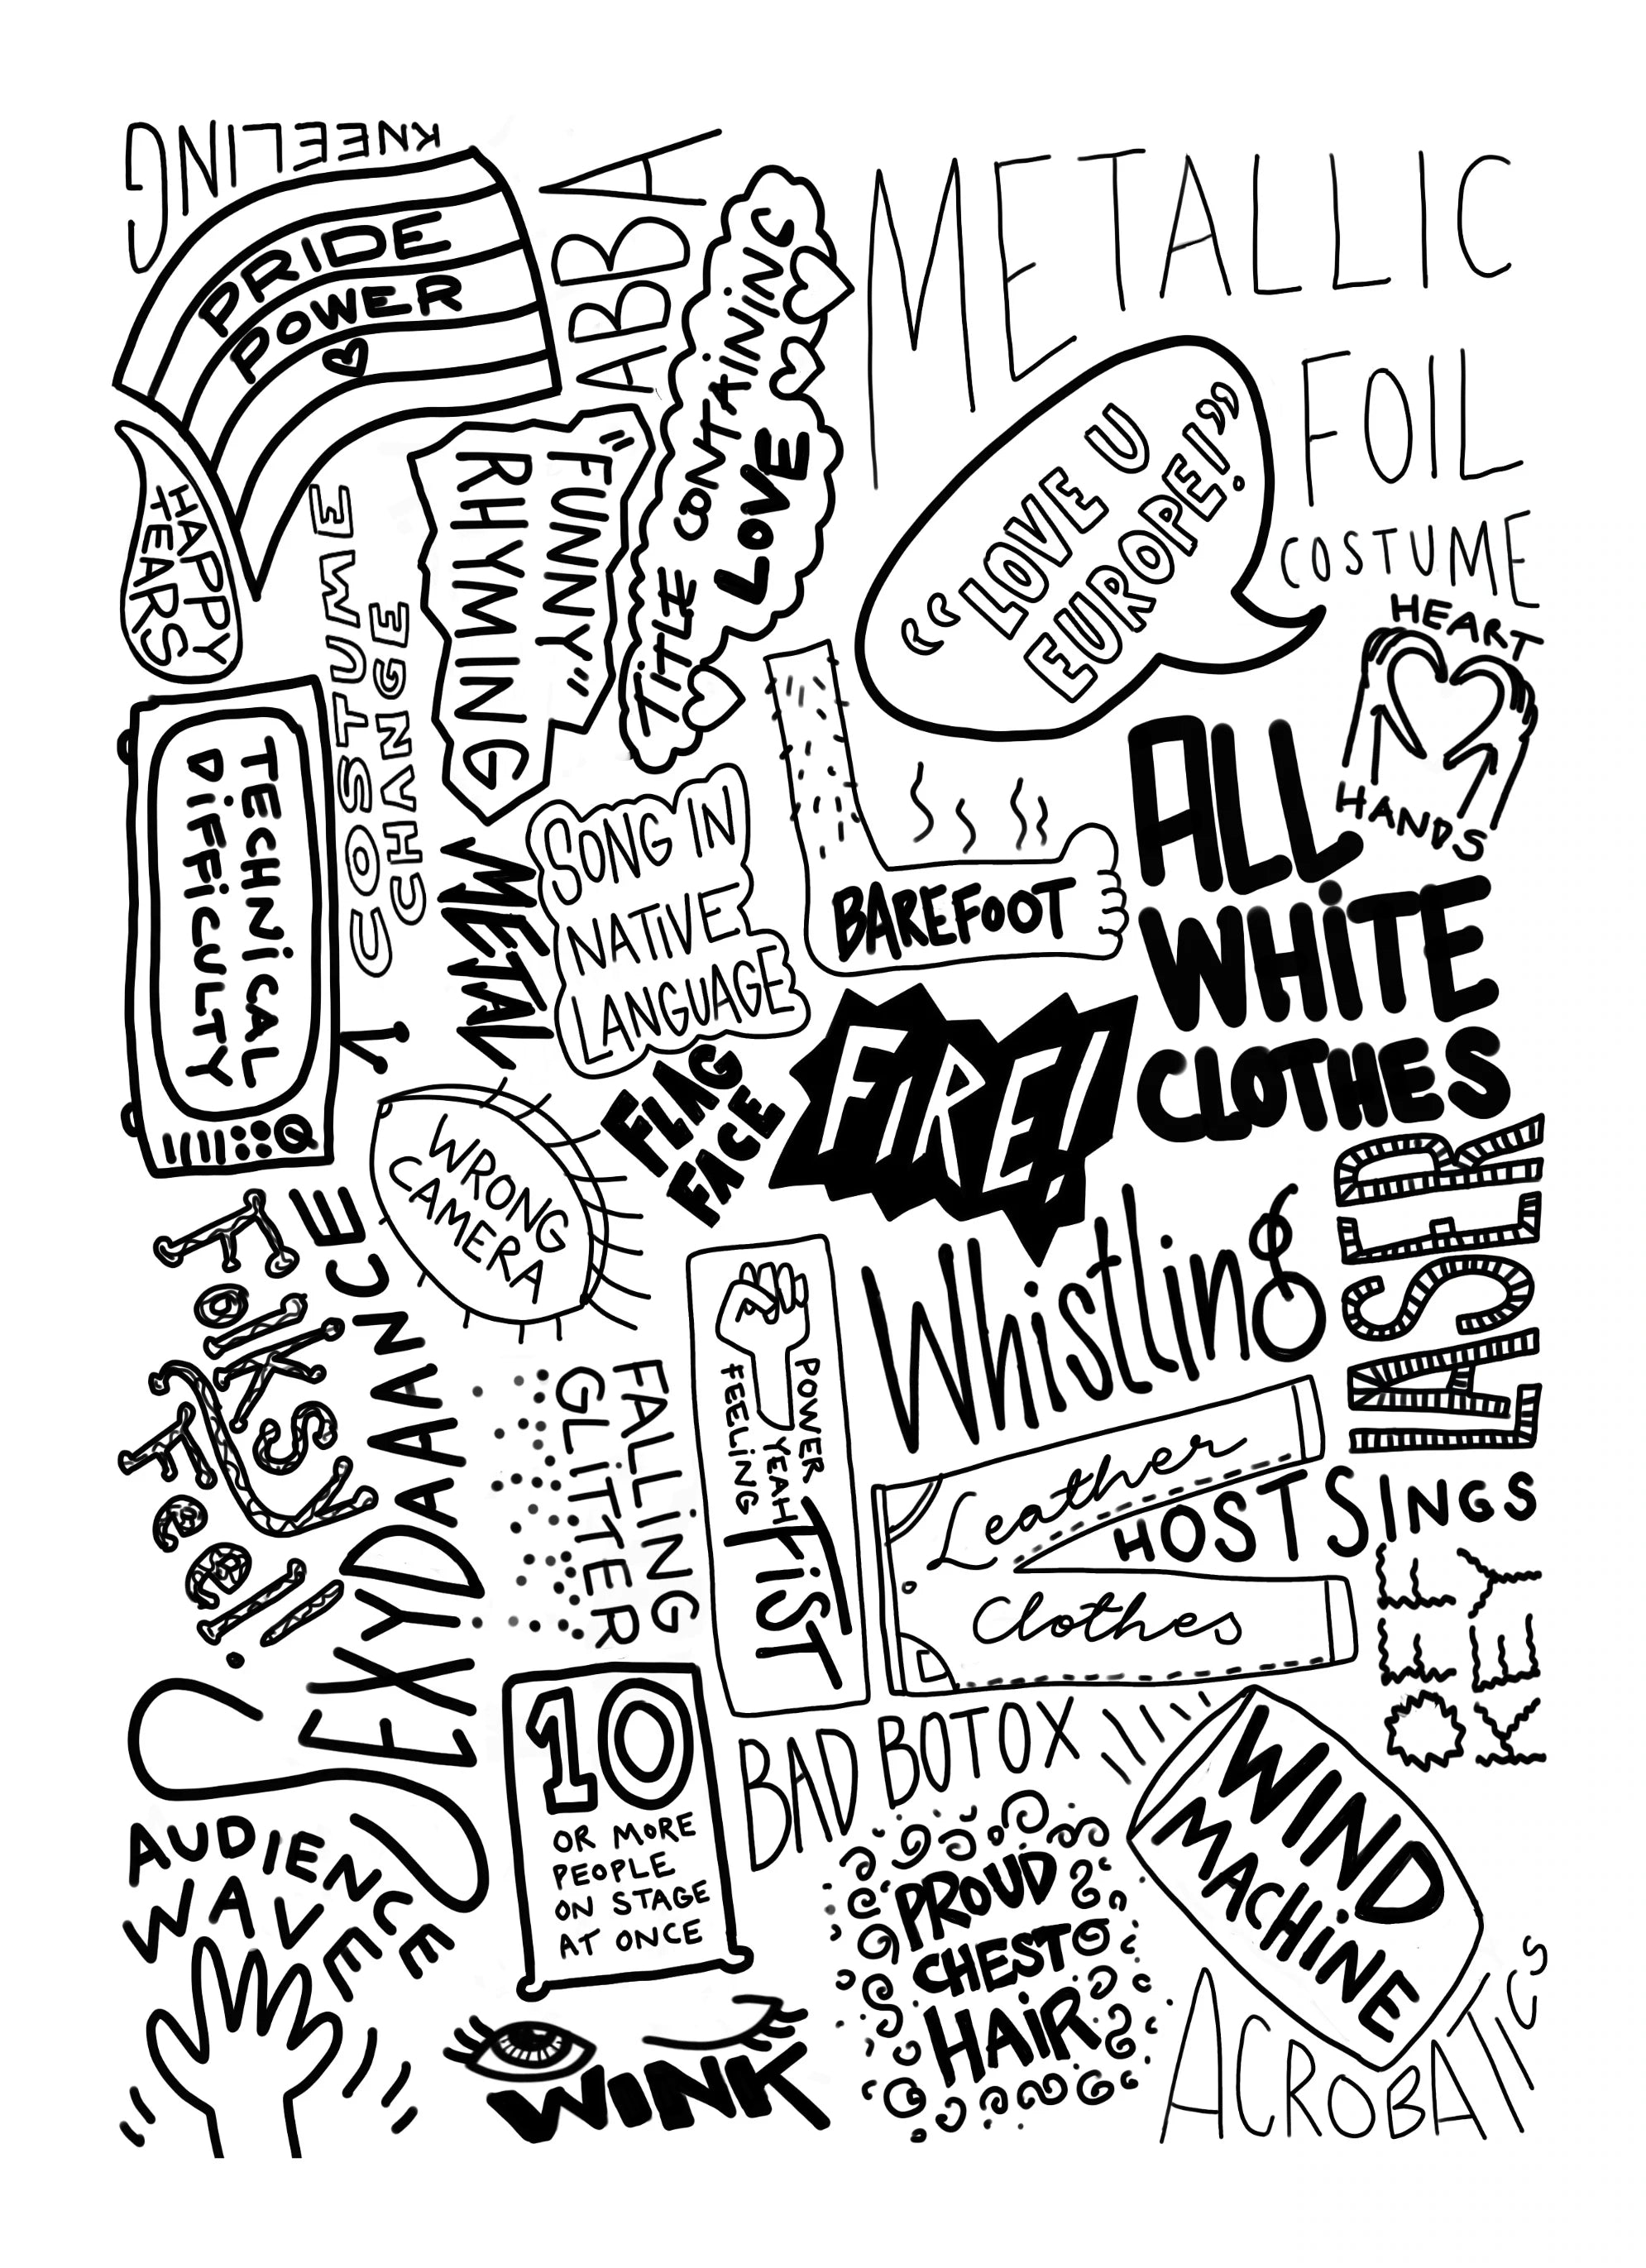 KNEELING
PRIDE
POWER
ABBA
TiTLE CONTAiNiNG
LOVE
METALLIC
FOIL
COSTUME
"LOVE U
EUROPE!"
HEART
HANDS
HAPPY
TEARS
COSTUME
CHANGE
"FUNNY"
RHYMING
TECHNiCAL
DiFFiCULTY
METAL
SONG IN
NATIVE
LANGUAGE
BAREFOOT
ALL
WHiTE
CLOTHES
FLAG
FACE
FIRE!
WRONG
CAMERA
Folksy
Feel
SEXYDAANCE
FALLiNG
GLiTTER
POWER YEAH
FEELiNG
FiST
Whistling
LASER
Leather
Clothes
HOST SINGS
OFF
KEY
10
OR MORE
PEOPLE
ON STAGE
AT ONCE
BAD BOTOX
WIND
MACHiNE
AUDIENCE
WAVE
WINK
PROUD
CHEST
HAiR
ACROBATICS